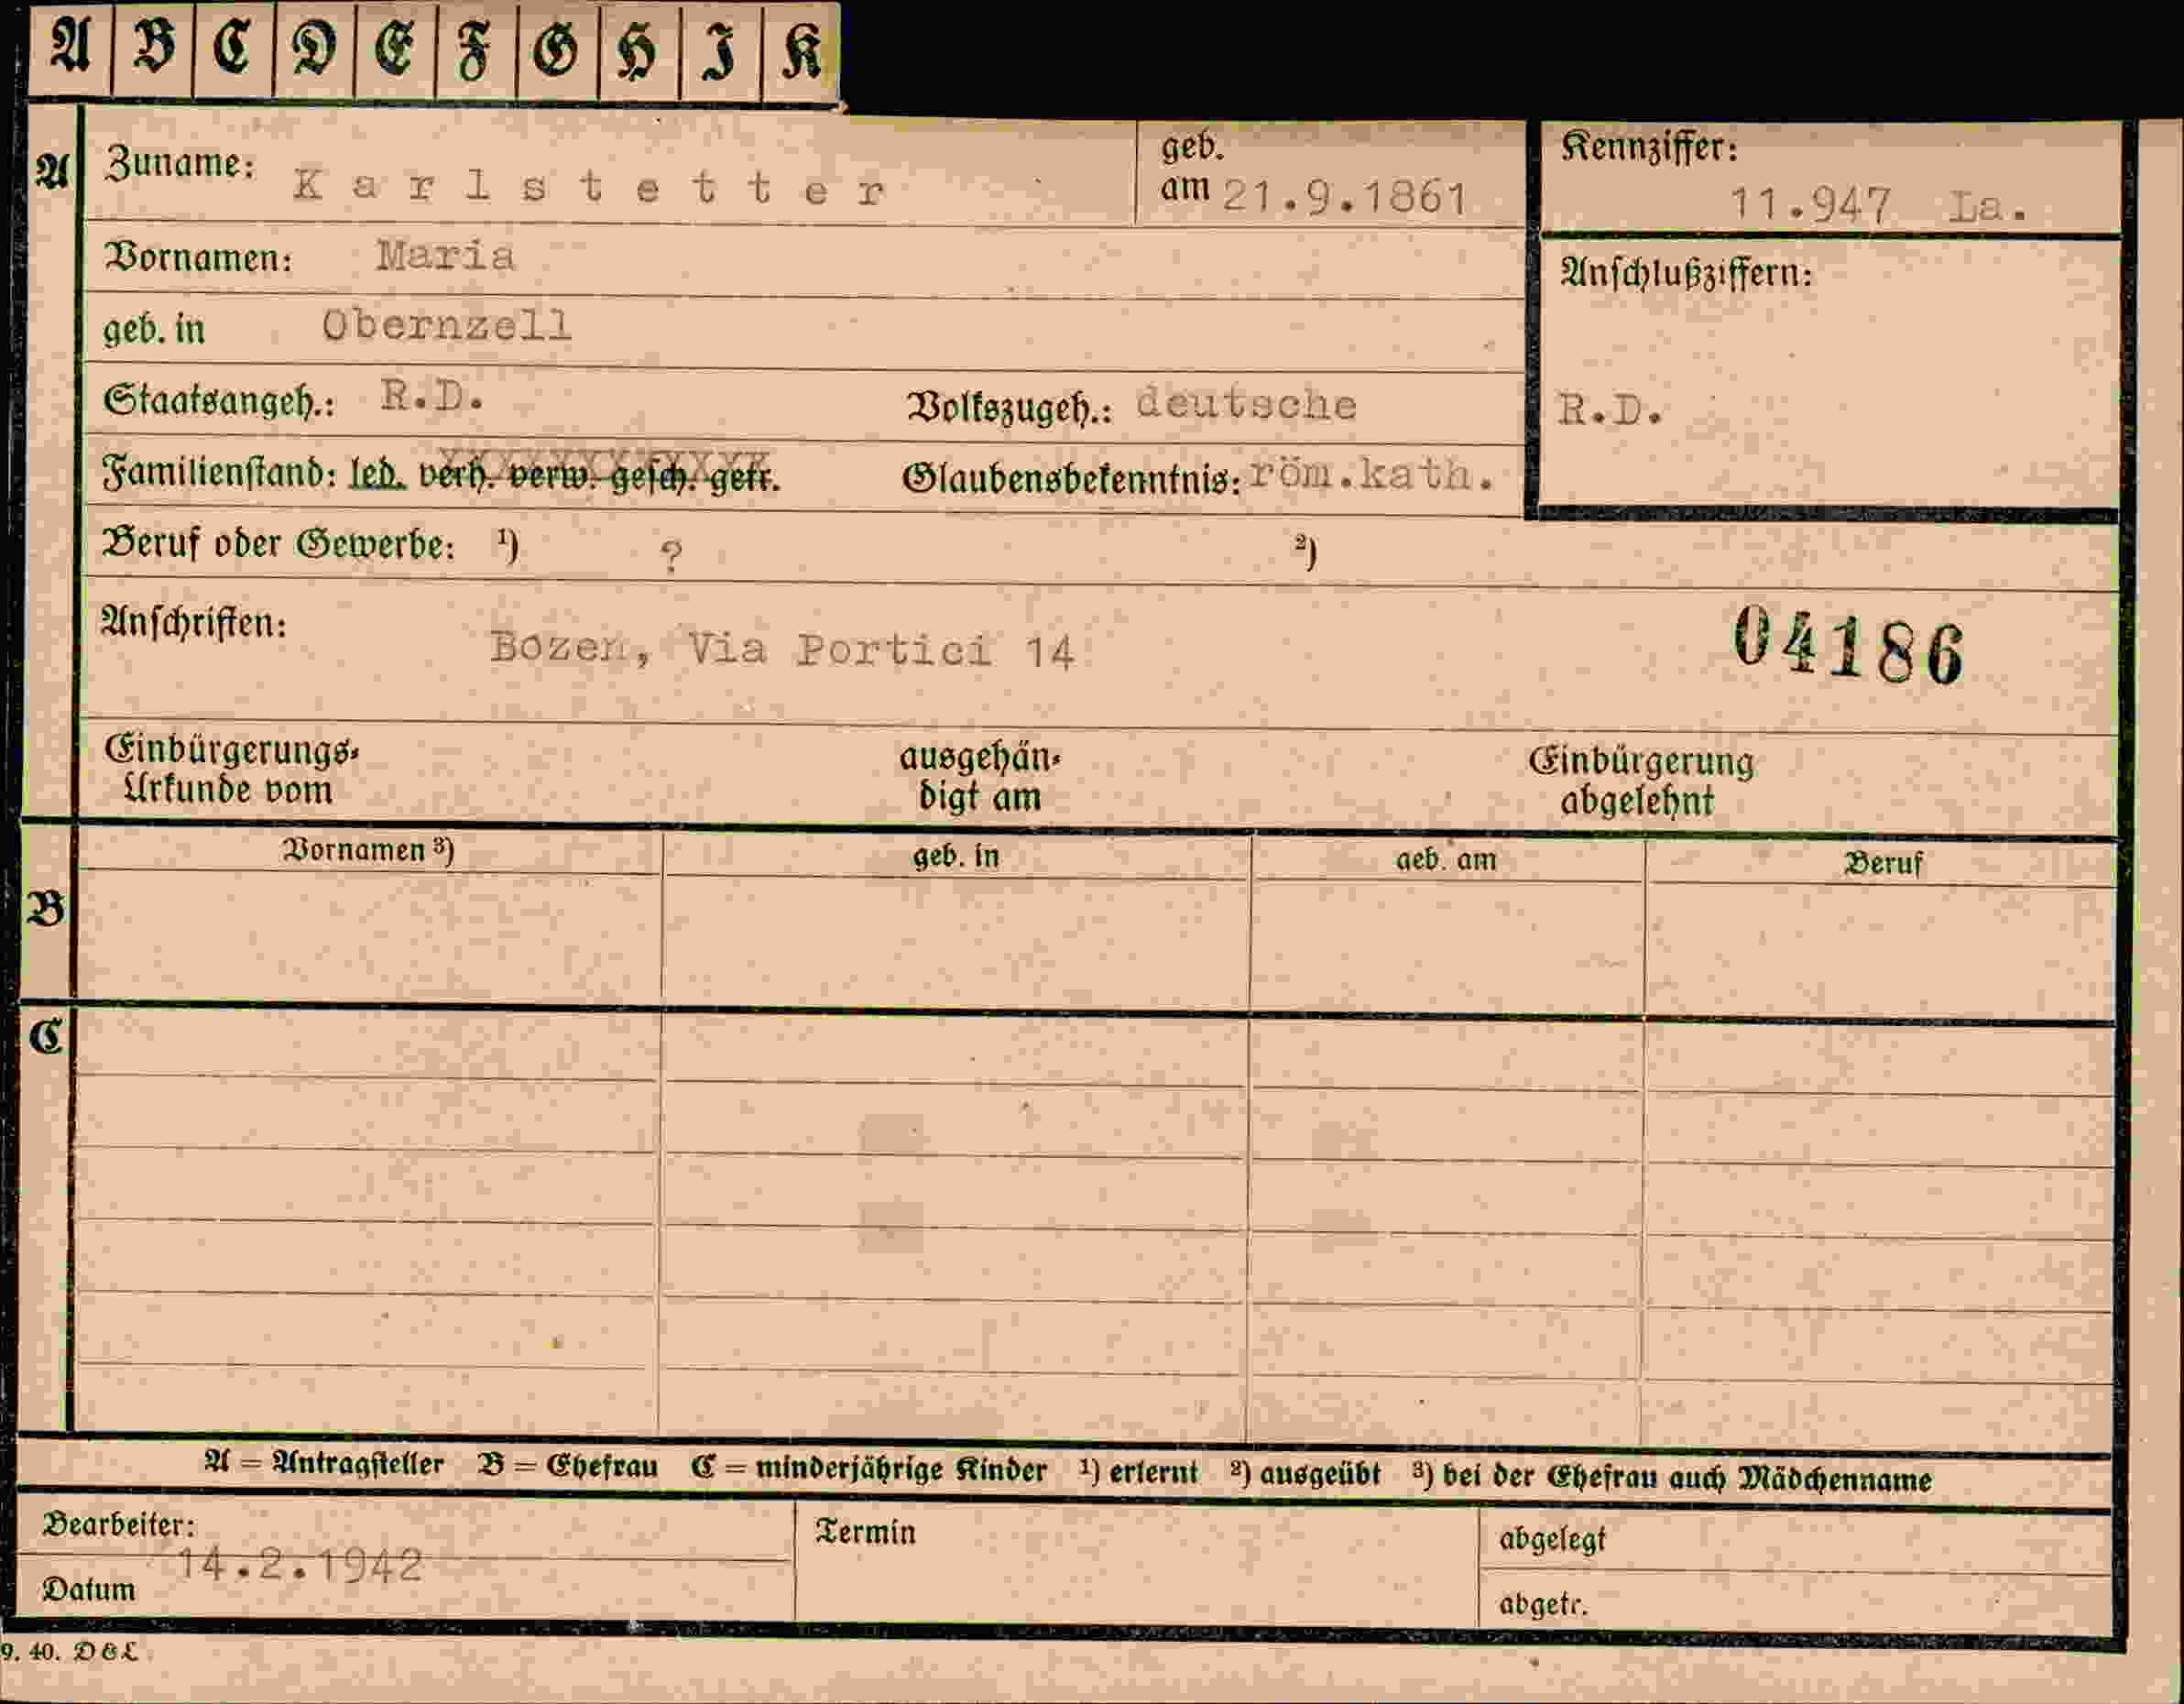 A B C D E F G H I K
A Zuname: Karlstetter geb. am 21.9.1861 Kennziffer: 11.947 La.
Vornamen: Maria Anschlußziffern:
geb. in Obernzell
Staatsangeh.: R.D. Volkszugeh.: deutsche R.D.
Familienstand: led. verh. verw. gesch. getr. Glaubensbekenntnis: röm.kath.
Beruf oder Gewerbe: ¹) ? ²)
Anschriften: Bozen, Via Portici 14 04186
Einbürgerungs- ausgehän- Einbürgerung
Urkunde vom digt am abgelehnt
Vornamen ³) geb. in geb. am Beruf
B
C
A = Antragsteller B = Ehefrau C = minderjährige Kinder ¹) erlernt ²) ausgeübt ³) bei der Ehefrau auch Mädchenname
Bearbeiter: Termin abgelegt
14.2.1942
Datum abgetr.
9. 40. D&L